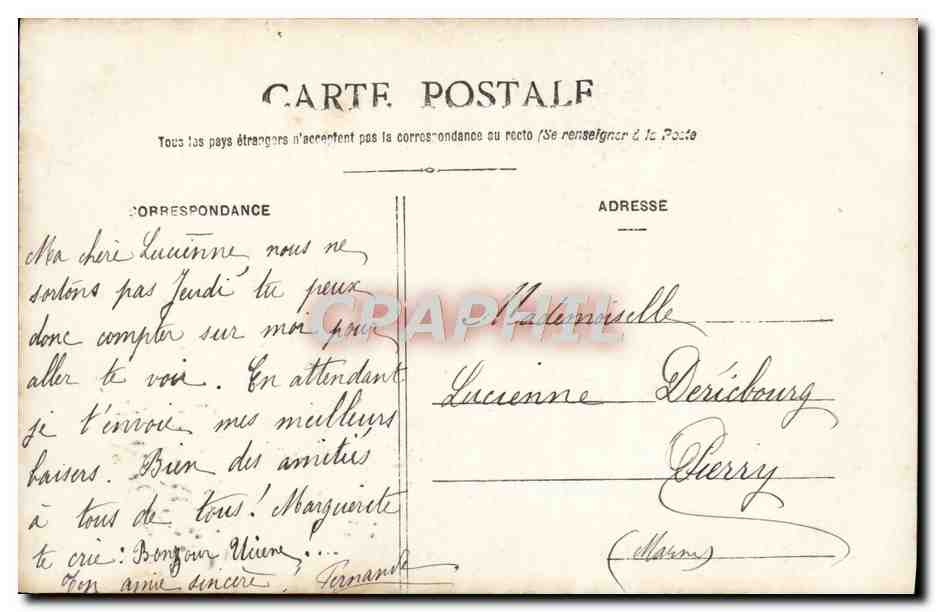 CARTE POSTALE
Tous les pays étrangers n'acceptent pas la correspondance au recto (Se renseigner à la Poste
CORRESPONDANCE
Ma chère Lucienne, nous ne
sortons pas Jeudi tu peux
donc compter sur moi pour
aller te voir. En attendant
je t'envoie mes meilleurs
baisers. Bien des amitiés
à tous de tous! Marguerite
te crie: Bonjour Uiiene!...
Ton amie sincère, Fernande
ADRESSE
Mademoiselle
Lucienne Déricbourg
Pierry
(Marne)
CPAPHIL